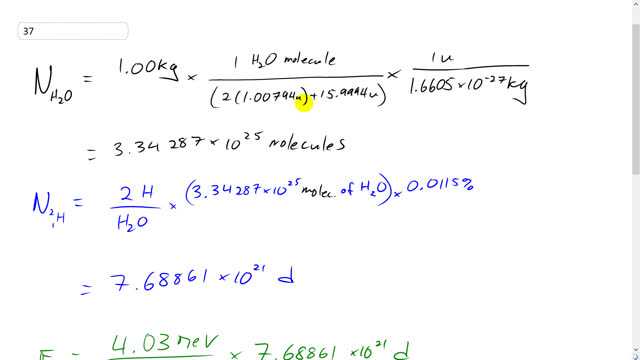 37
N_H₂O = 1.00kg × 1 H₂O molecule / (2(1.00794u)+15.9994u) × 1u / 1.6605×10⁻²⁷kg
= 3.34287×10²⁵ molecules
N_²₁H = 2H / H₂O × (3.34287×10²⁵ molec. of H₂O) × 0.0115%
= 7.68861×10²¹ d
E = 4.03 MeV × 7.68861×10²¹ d